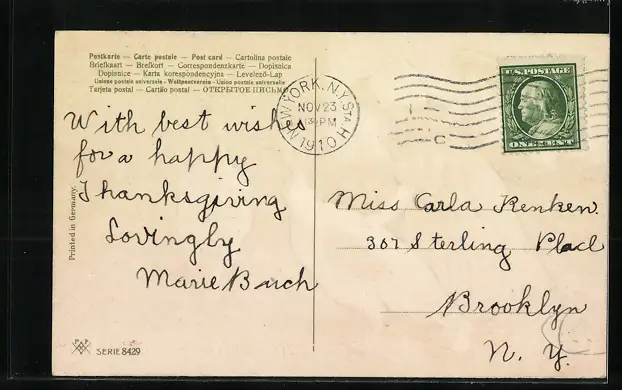 Postkarte — Carte postale — Post card — Cartolina postale
Briefkaart — Brefkort — Correspondenzkarte — Dopisnica
Dopisnice — Karta korespondencyjna — Levelező-Lap
Unione postale universale - Weltpostverein - Union postale universelle
Tarjeta postal — Cartão postal — ОТКРЫТОЕ ПИСЬМО
NEW YORK, N.Y. STA. H
NOV 23
PM
1910
C
U.S. POSTAGE
ONE CENT
With best wishes
for a happy
Thanksgiving
Lovingly
Marie
Miss Carla Renken.
307 Sterling Place
Brooklyn
N. Y.
Printed in Germany.
SERIE 8429